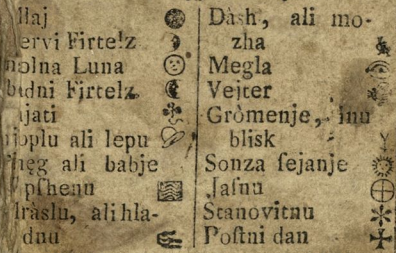 Mlaj
Pervi Firtelz
Polna Luna
Sadni Firtelz
Sjati
Toplu ali lepu
Sneg ali babje
pſhenu
Mràslu, ali hla-
dnu
Dàsh, ali mo-
zha
Megla
Vejter
Gròmenje, inu
bliſk
Sonza ſejanje
Jaſnu
Stanovitnu
Poſtni dan